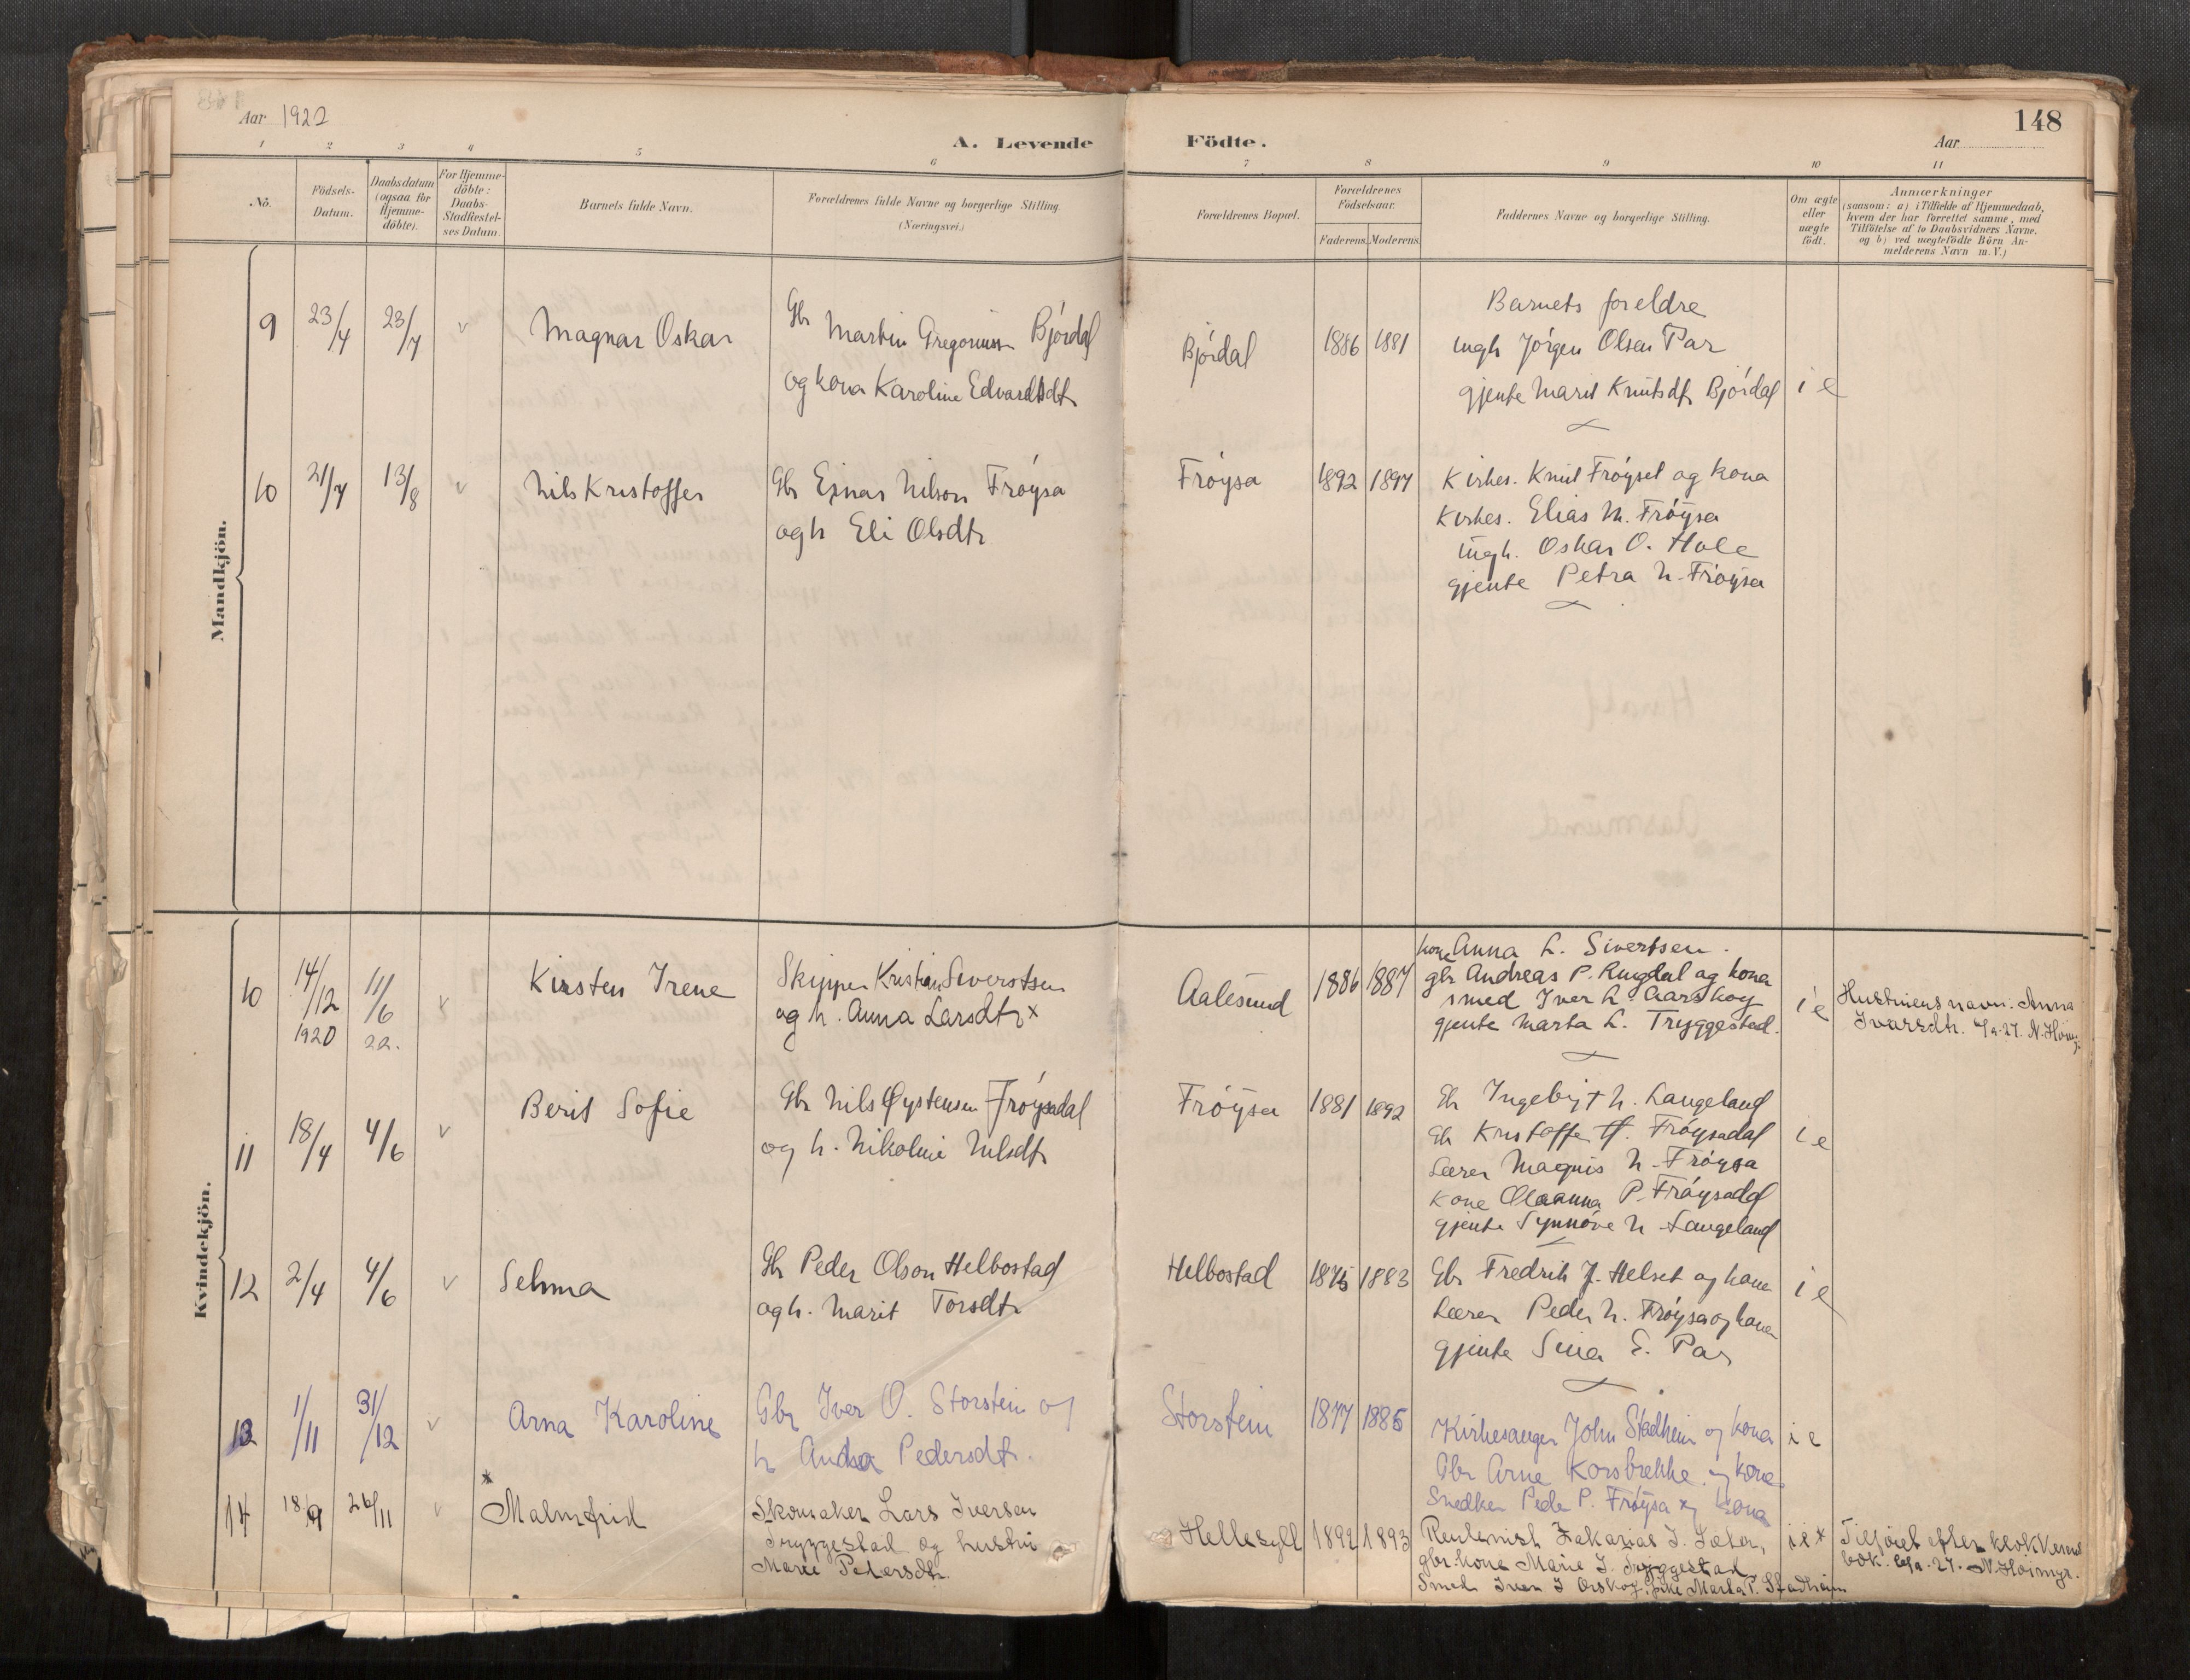 Aar 1922
A. Levende Födte.
Aar
148
1 2 3 4 5 6 7 8 9 10 11
No.
Födsels-Datum.
Daabsdatum (ogsaa for Hjemme-döbte).
For Hjemme-döbte: Daabs-Stadfestel-ses Datum.
Barnets fulde Navn.
Forældrenes fulde Navne og borgerlige Stilling.
(Næringsvei.)
Forældrenes Bopæl.
Forældrenes Födselsaar.
Faderens. Moderens.
Faddernes Navne og borgerlige Stilling.
Om ægte eller uægte födt.
Anmærkninger
(saasom: a) i Tilfælde af Hjemmedaab,
hvem der har forrettet samme, med
Tilföielse af to Daabsvidners Navne.
og b) ved uægtefödte Börn An-
melderens Navn m. V.)
Mandkjön.
9 23/4 23/7 v Magnar Oskar
Gbr Martin Gregoriussen Bjórdal
og kona Karoline Edvardsdtr
Bjórdal 1886 1881
Barnets foreldre
ungk Jórgen Olsen Par
gjente Marit Knutsdtr Bjórdal
i e
10 21/7 13/8 v Nils Kristoffer
Gbr Einar Nilson Fróysa
og h Eli Olsdtr
Fróysa 1892 1897
Kirkes. Knut Fróyset og kona
Kirkes. Elias N. Fróysa
ungk. Oskar O. Hole
gjente Petra N. Fróysa
Kvindekjön.
10 14/12 1920 11/6 22. v Kirsten Irene
Skipper Kristian Severotsen
og h. Anna Larsdtr x
Aalesund 1886 1887
kone Anna L. Sivertsen.
gbr Andreas P. Ringdal og kona
smed Iver L. Aarskog
gjente Marta L. Tryggestad.
i e
Hustruens navn: Anna
Ivarsdtr. N. Höimyr.
11 18/4 4/6 v Berit Sofie
Gbr Nils Øystensen Fróysadal
og h. Nikoline Nilsdtr
Fróysa 1881 1892
Gbr Ingebrigt N. Langeland
Gbr Kristoffer Ø. Fróysadal
Lærer Magnus N. Fróysa
Kone Olaanna P. Fróysadal
gjente Synnóve N. Langeland
i e
12 2/4 4/6 v Selma
Gbr Peder Olson Helbostad
og h. Marit Torsdtr
Helbostad 1875 1883
Gbr Fredrik J. Helset og kona
Lærer Peder N. Fróysa og kona
gjente Sina E. Par
i e
13 1/11 31/12 v Arna Karoline
Gbr Iver O. Storstein og
h Andrea Pedersdtr.
Storstein 1877 1885
Kirkesanger John Stadheim og kona
Gbr Arne Korsbrekke og kona
Snedker Peder P. Fróysa og kona
i e
14 18/9 26/11 v * Malmfrid
Skomaker Lars Iversen
Tryggestad og hustru
Marie Pedersdtr.
Hellesylt 1892 1893
Rentenist Zakarias I. Sæter,
gbr. kone Marie I. Tryggestad,
Smed Iver I Orskog, pike Marta P. Stadheim
i e *
Tilföiet efter klokkerens
bok. N. Höimyr.